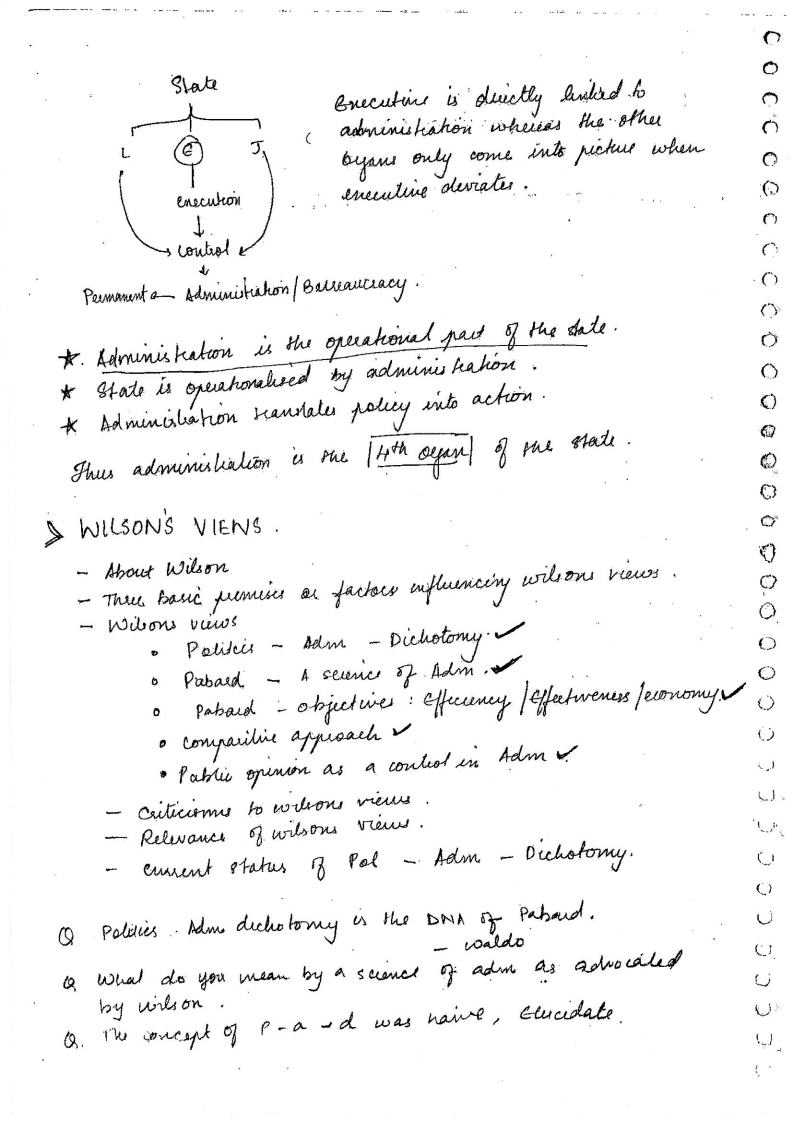 State
L E J
execution
control
Permanent Administration/Bureaucracy.
Executive is directly linked to
administration whereas the other
organs only come into picture when
executive deviates.
★. Administration is the operational part of the state.
★ State is operationalised by administration.
★ Administration translates policy into action.
Thus administration is the 4th organ of the state.
WILSON'S VIEWS.
- About Wilson
- Three basic premises or factors influencing wilsons views.
- Wilsons views
• Politics - Adm - Dichotomy. ✓
• Pubad - A science of Adm. ✓
• Pubad - objectives : Efficiency/Effectiveness/economy. ✓
• comparitive approach ✓
• Public opinion as a control in Adm ✓
- Criticisms to wilsons views.
- Relevance of wilsons views.
- current status of Pol - Adm - Dichotomy.
Q Politics - Adm dichotomy is the DNA of Pubad.
- Waldo
Q What do you mean by a science of adm as advocated
by wilson.
Q. The concept of P-a-d was naive, Elucidate.